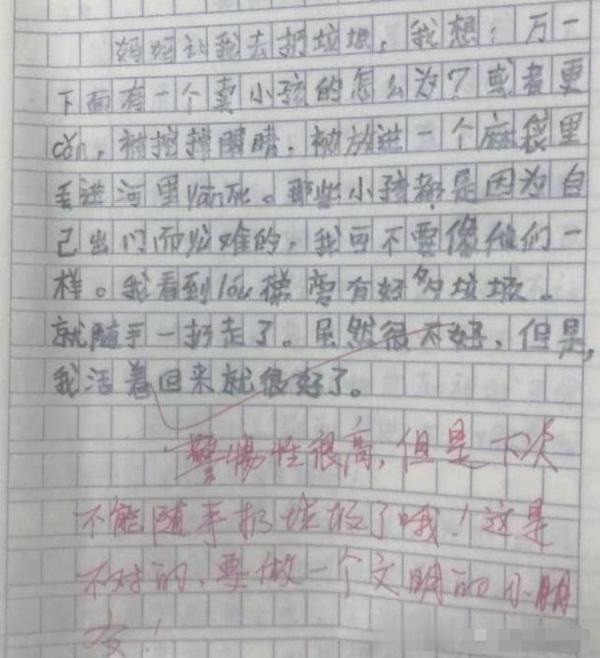 妈妈让我去扔垃圾，我想：万一
下面有一个卖小孩的怎么为？或者更
cǎn，被挖掉眼睛，被放进一个麻袋里
丢进河里yān死。那些小孩都是因为自
己出门而发难的，我可不要像他们一
样。我看到lóu梯旁有好多垃圾。
就随手一扔走了。虽然很不好，但是，
我活着回来就很好了。
警惕性很高，但是下次
不能随手扔垃圾了哦！这是
不对的，要做一个文明的小朋
友！